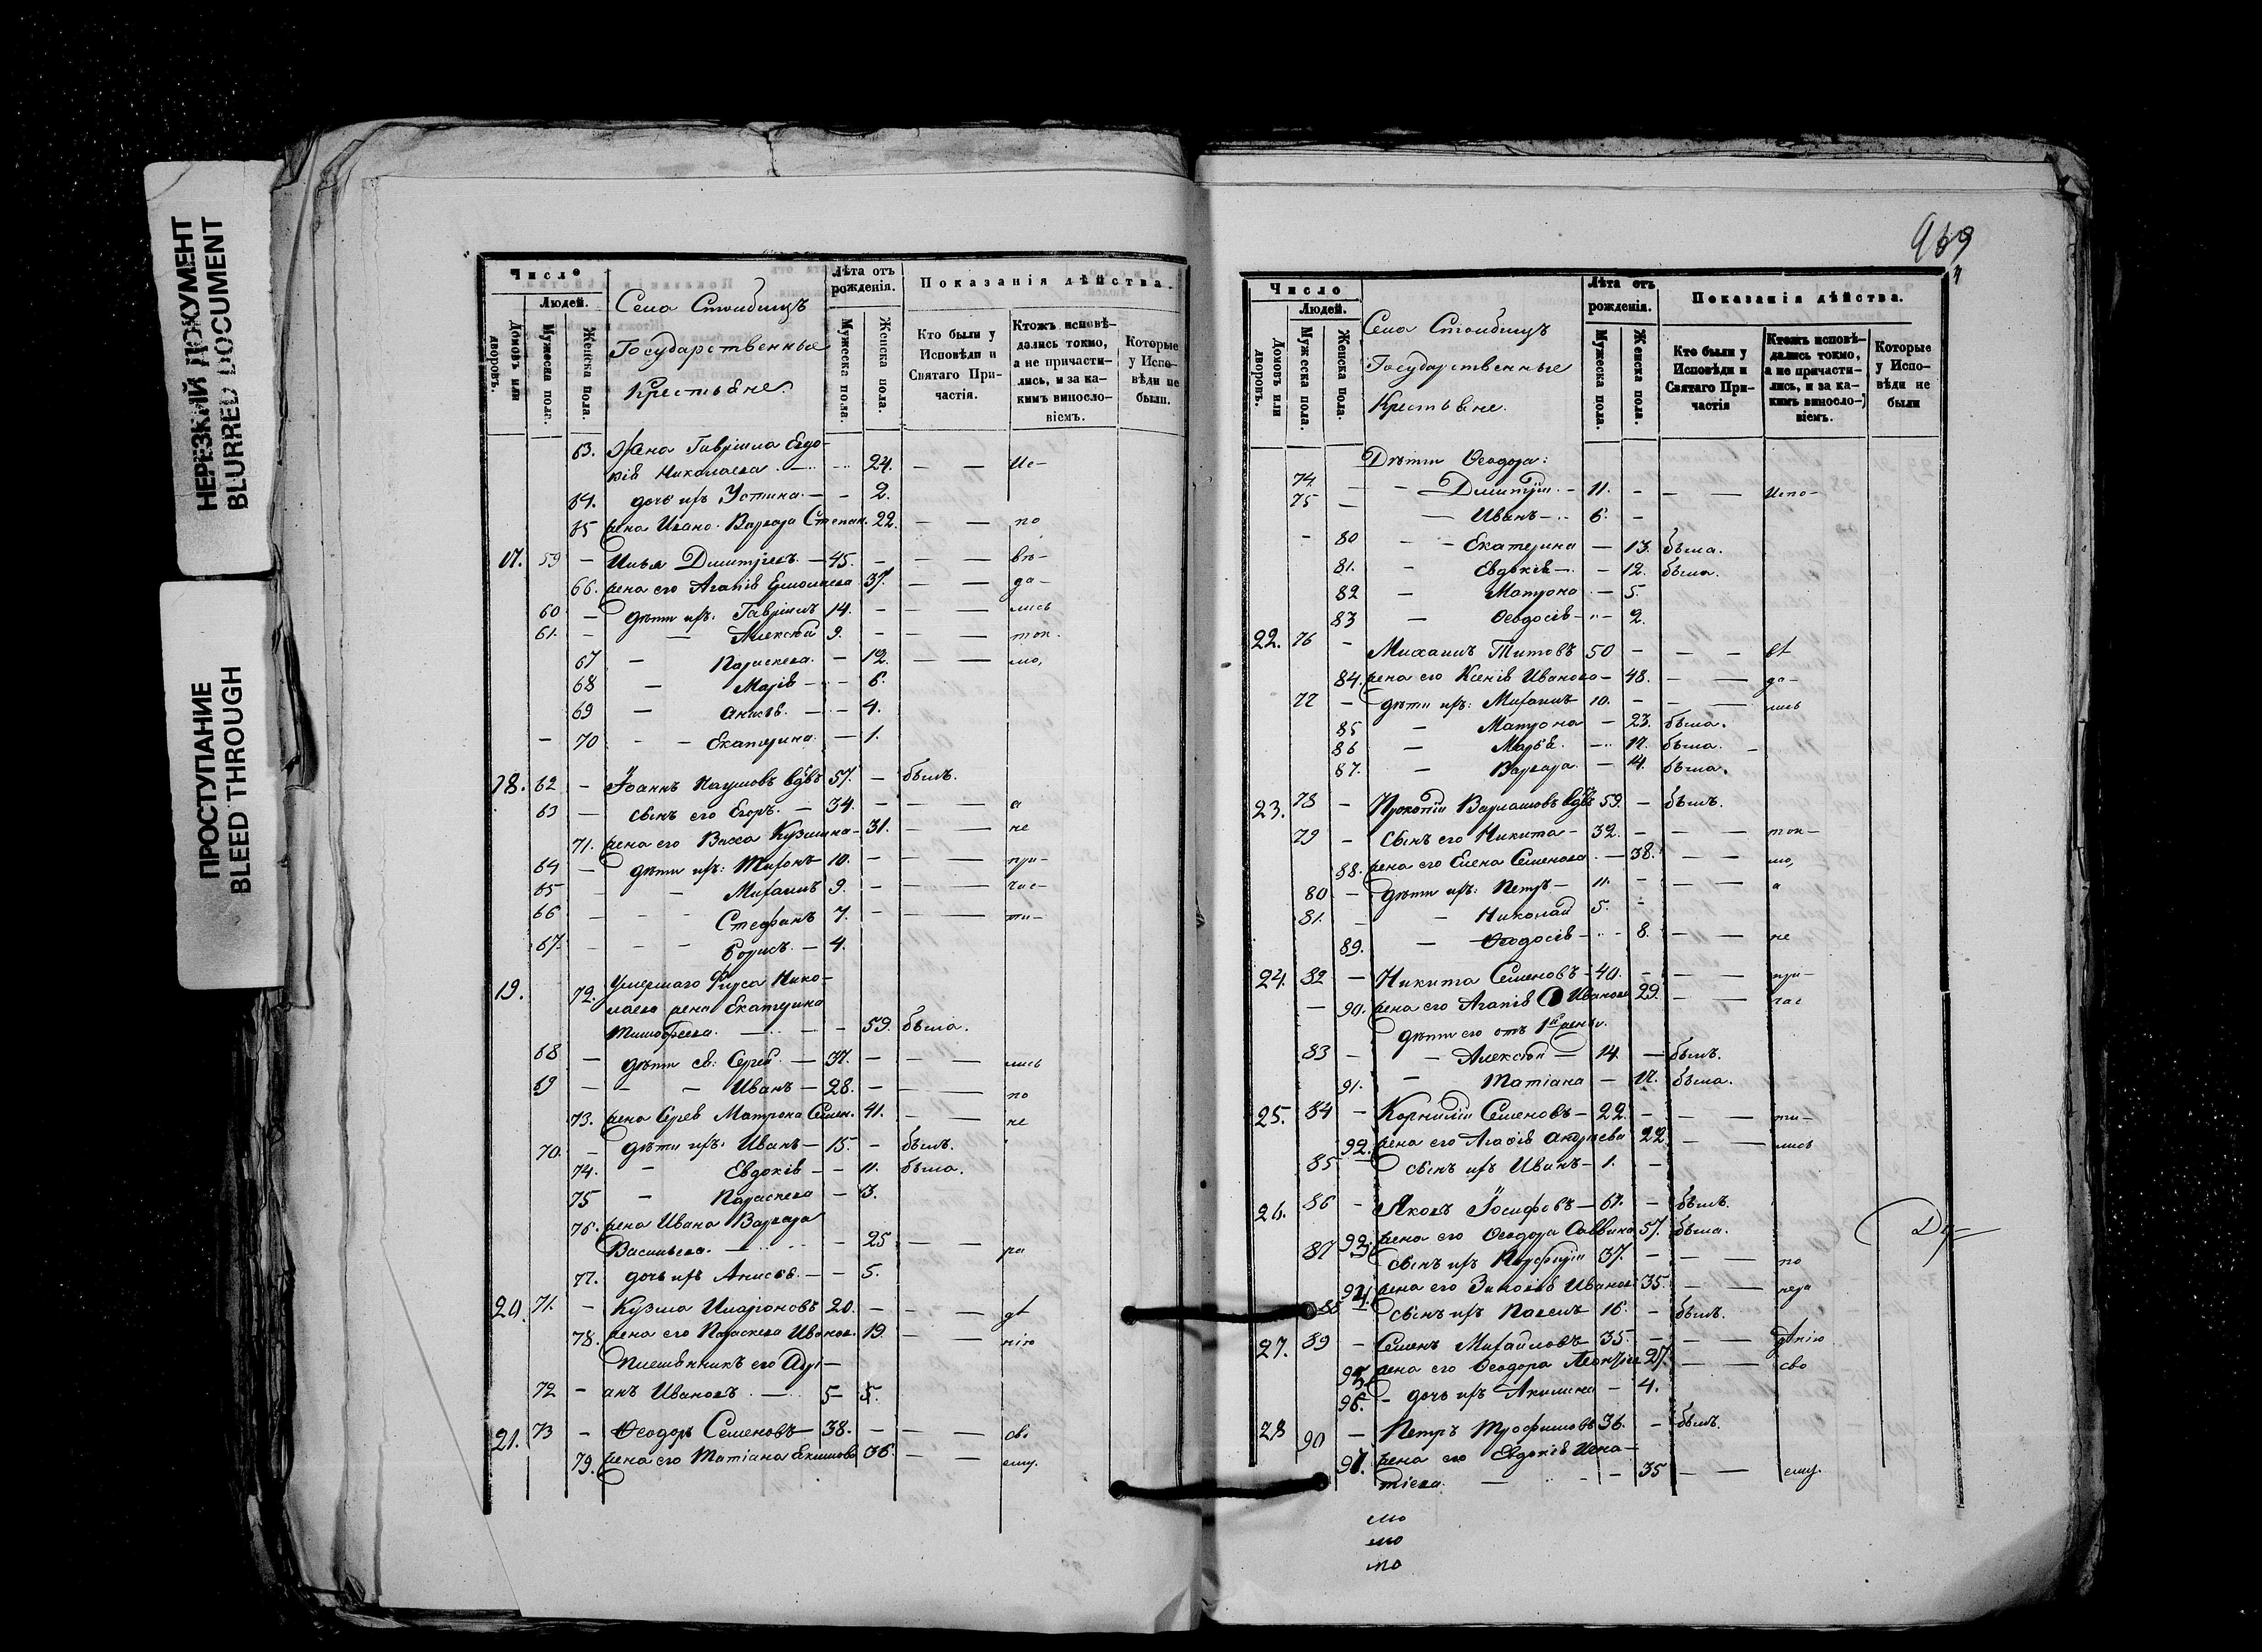 НЕРЕЗКИЙ ДОКУМЕНТ
BLURRED DOCUMENT
ПРОСТУПАНИЕ
BLEED THROUGH
Число
Людей.
Домовъ или дворовъ.
Мужеска пола.
Женска пола.
Села Столбищъ
Государственные
Крестьяне.
Лѣта отъ рожденія.
Мужеска пола.
Женска пола.
Показанія дѣйства.
Кто были у Исповѣди и Святаго Причастія.
Ктожъ исповѣдались токмо, а не причастились, и за какимъ винословіемъ.
Которые у Исповѣди не были.
63. Жена Гавріила Евдо-
кія Николаева — 24. — — Ис-
64. дочь ихъ Устина — - 2.
65 жена Ивана Варвара Степан. 22. — — по
17. 59 — Илья Димитріевъ — 45. — — — вѣ-
66. жена его Агапія Ермолаева 37. — — да-
60 — дѣти ихъ: Гавріилъ 14. — — — лись
61. — — Алексѣй 9. — — — ток-
67 — Параскева — 12. — — мо,
68 — Марія — — 6.
69 — Анисія — — 4.
— 70 — — Екатерина — — 1.
18. 62 — Іоаннъ Наумовъ вдвъ 57. — былъ.
63 — сынъ его Егоръ — 34. — — — а
71. жена его Васса Кузмина — 31. — — не
64 — дѣти ихъ: Тихонъ 10. — — — при-
65 — — Михаилъ 9. — — — час-
66 — — — Стефанъ 7. — — — ти-
67. — — — Борисъ — 4.
19. 72. Умершаго Фирса Нико-
лаева жена Екатерина
Тимофеева — — 59. была.
68 — дѣти ея: Сергѣй — 37. — — — лись
69 — — — Иванъ — 28. — — — по
73. жена Сергѣя Матрона Семен. 41. — — не
70. — дѣти ихъ: Иванъ — 15. — былъ.
74. — Евдокія — — 11. была.
75 — Параскева — 3.
76. жена Ивана Варвара
Васильева. — — 25 — — ра
77. дочь ихъ Анисія — — 5.
20. 71. — Кузма Иларіоновъ 20. — — — дѣ
78. жена его Параскева Иванов. 19. — — нію
Племянникъ его Адрі-
72 — анъ Ивановъ — 5 - 5.
21. 73 — Ѳеодоръ Семеновъ — 38. — — — сво
79. жена его Татіана Екимова 36. — — ему.
Число
Людей.
Домовъ или дворовъ.
Мужеска пола.
Женска пола.
Села Столбищъ
Государственные
Крестьяне.
Лѣта отъ рожденія.
Мужеска пола.
Женска пола.
Показанія дѣйства.
Кто были у Исповѣди и Святаго Причастія
Ктожъ исповѣдались токмо, а не причастились, и за какимъ винословіемъ.
Которые у Исповѣди не были
Дѣти Ѳеодора:
74. — — Димитрій — 11. — — — Испо-
75 — — Иванъ — 6. —
— 80 — — Екатерина — 13. была.
81. — Евдокія — — 12. была.
82 — Матрона — 5.
83 — Ѳеодосія — — 2.
22. 76 — Михаилъ Титовъ 50 — — — вѣ
84. жена его Ксенія Иванова — 48. — — да-
77 — дѣти ихъ: Михаилъ 10. — — — лись
85 — Матрона — 23. была.
86 — Марья — 17. была. —
87. — Варвара — 14. была.
23. 78 — Прокопій Варламовъ вдвъ 59. — былъ.
79 — Сынъ его Никита — 32. — — — ток-
88. жена его Елена Семенова — 38. — — мо,
80 — дѣти ихъ: Петръ — 11. — — — а
81. — — Николай 5. —
89. — Ѳеодосія — — 8. — — не
24. 82 — Никита Семеновъ — 40. — — — при-
— 90. жена его Агапія Иванова 29. — — час
дѣти его отъ 1й жены.
83 — — Алексѣй — 14. — былъ.
91. — Татіана — 17. была.
25. 84 — Корнилій Семеновъ — 22. — — — ти-
92. жена его Агафія Андреева 22. — — лись
85 — сынъ ихъ Иванъ — 1. —
26. 86 — Яковъ Іосифовъ — 61. — былъ.
жена его Ѳеодора Саввина 57. была.
87 сынъ ихъ Порфирій 37. — — — по
94. жена его Зиновія Иванов. 35. — — нера
88 — сынъ ихъ Павелъ 16. — былъ.
27. 89 — Семенъ Михайловъ 35. — — — дѣнію
95. жена его Ѳеодора Леонтіев. 27. — — сво
96. — дочь ихъ Акилина — 4.
28 90 — Петръ Трофимовъ 36. — былъ.
97. жена его Евдокія Игна-
тіева. — — 35 — — ему.
мо
мо
по